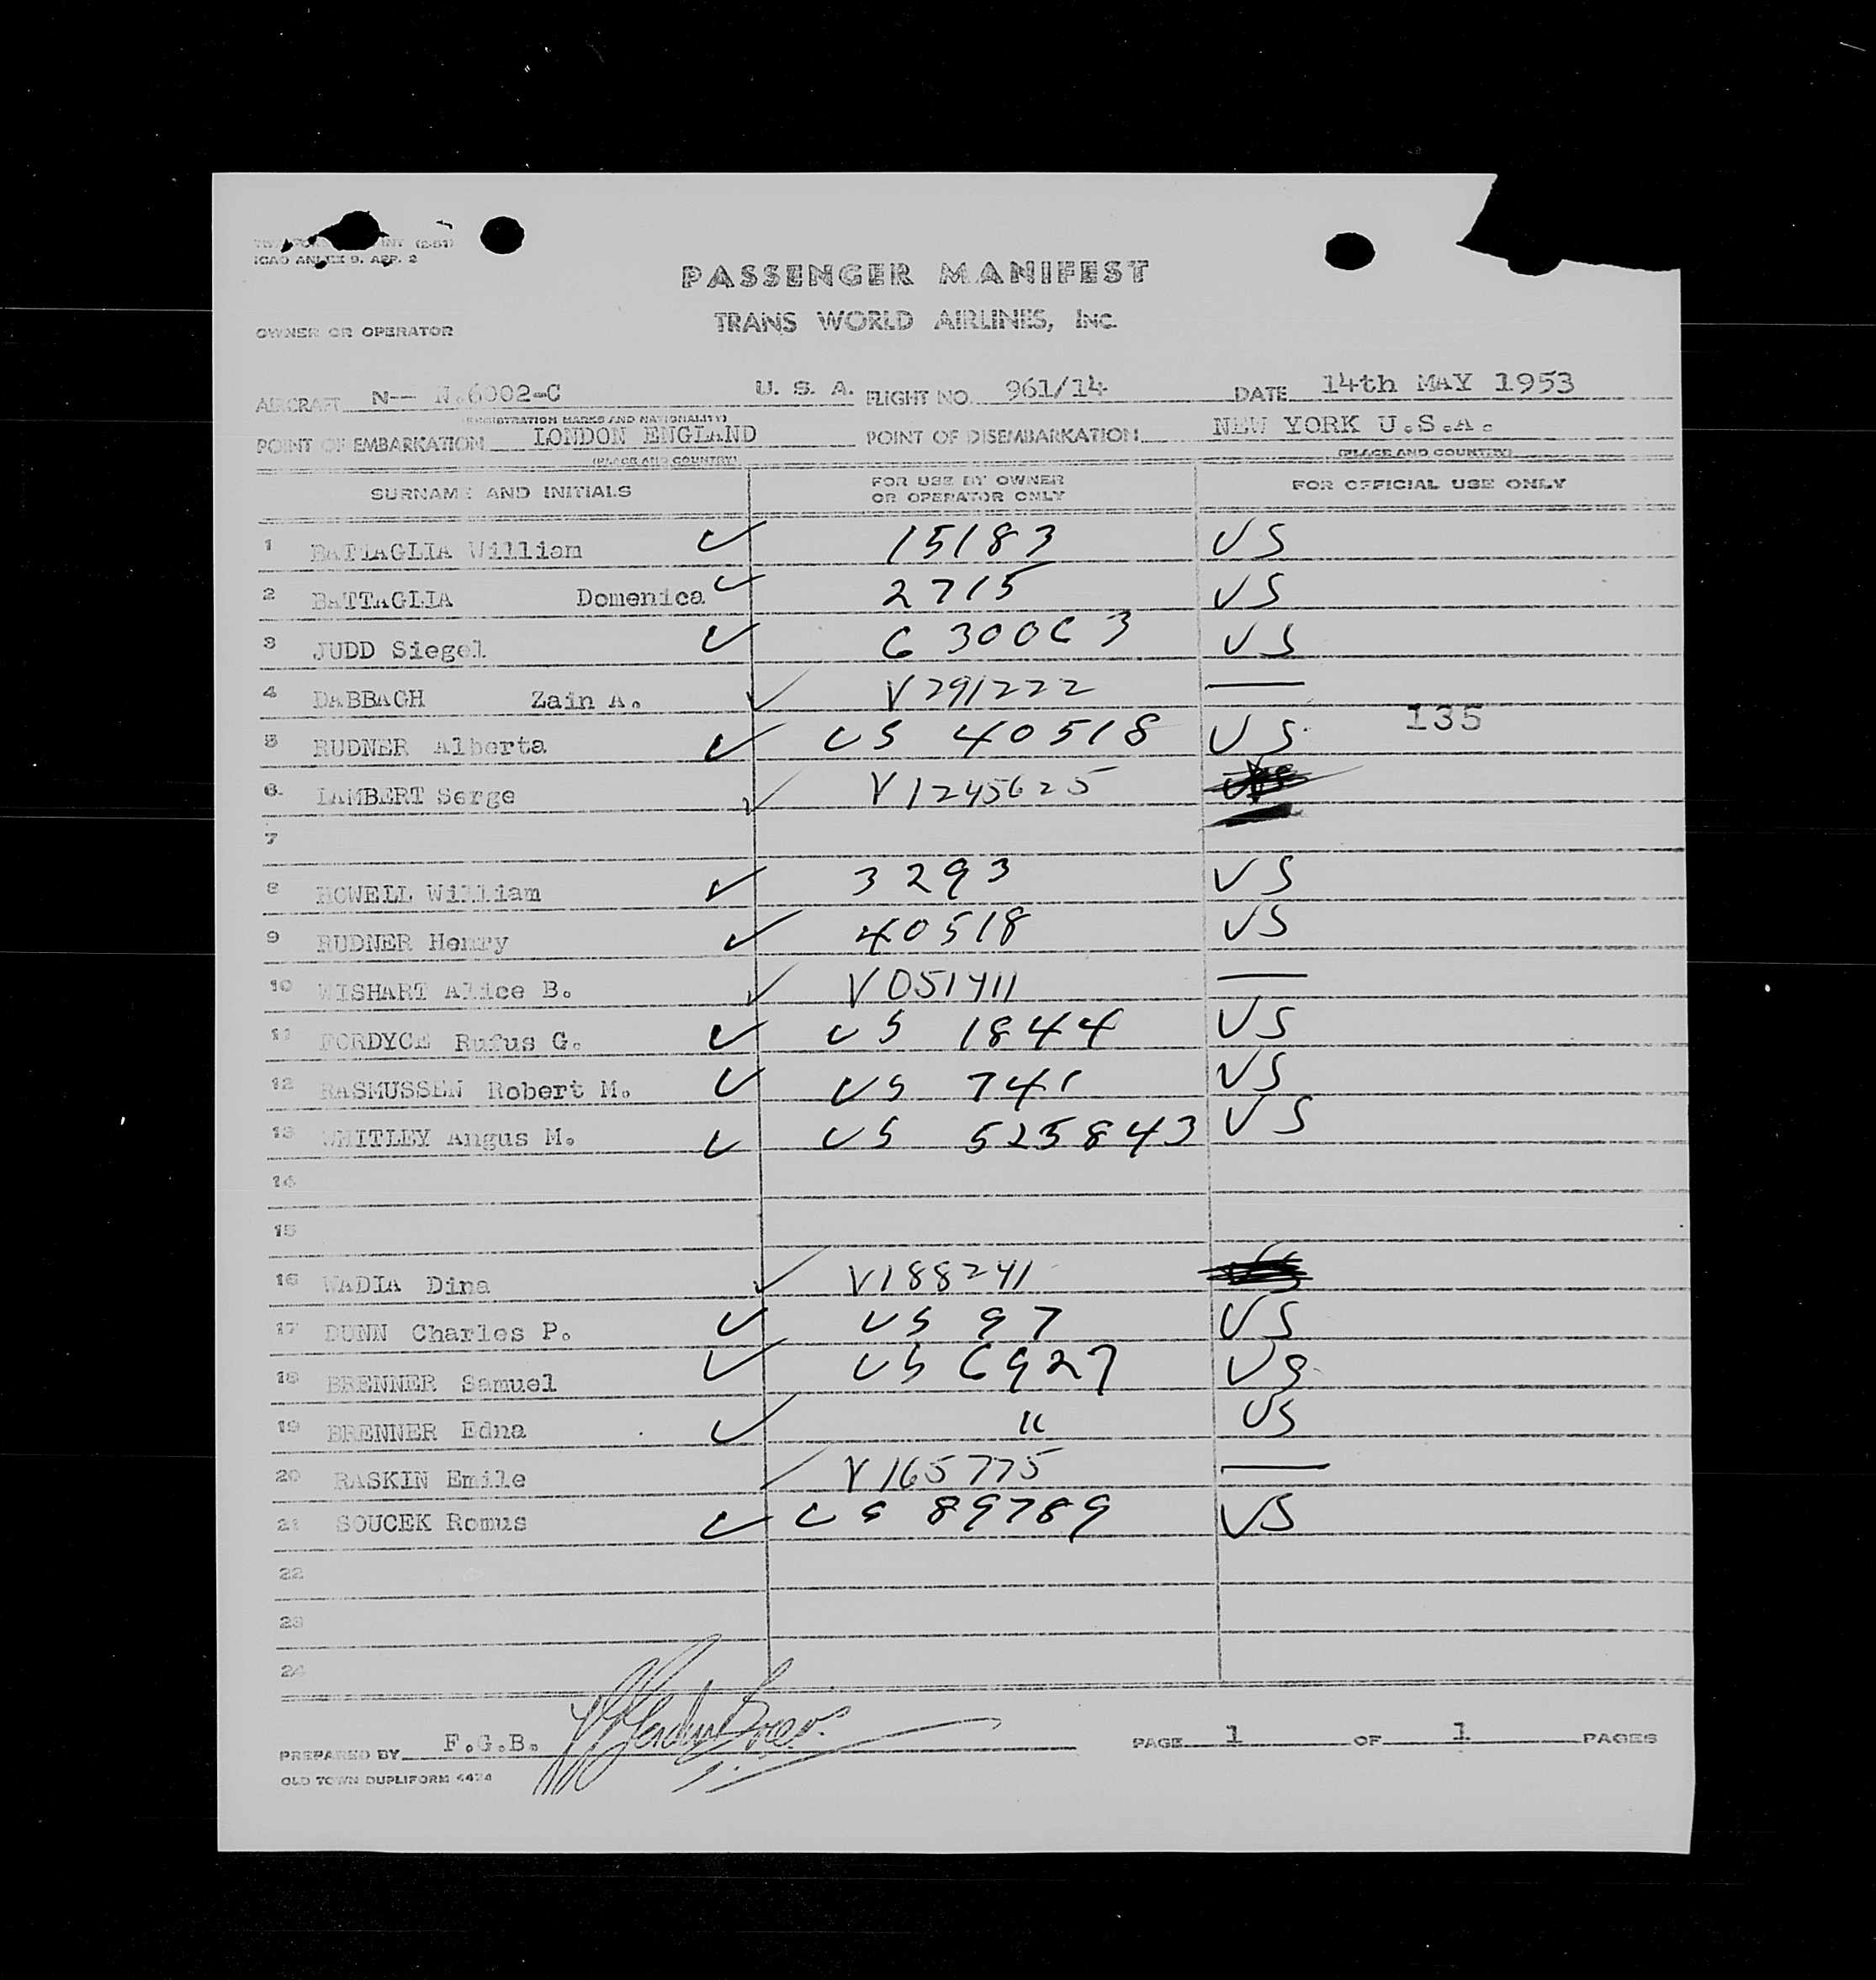 ICAO ANNEX 9. APP. 2
PASSENGER MANIFEST
TRANS WORLD AIRLINES, INC.
OWNER OR OPERATOR
AIRCRAFT N-- N.6002-C U. S. A. FLIGHT NO. 961/14 DATE 14th MAY 1953
(REGISTRATION MARKS AND NATIONALITY)
POINT OF EMBARKATION LONDON ENGLAND POINT OF DISEMBARKATION NEW YORK U.S.A.
(PLACE AND COUNTRY) (PLACE AND COUNTRY)
SURNAME AND INITIALS FOR USE BY OWNER OR OPERATOR ONLY FOR OFFICIAL USE ONLY
1 BATTAGLIA William 15183 US
2 BATTAGLIA Domenica 2715 US
3 JUDD Siegel 630063 US
4 DABBAGH Zain A. V291222 —
135
5 RUDNER Alberta US 40518 US
6. LAMBERT Serge V1245625
7
8 HOWELL William 3293 US
9 RUDNER Henry 40518 US
10 WISHART Alice B. V051411 —
11 FORDYCE Rufus G. US 1844 US
12 RASMUSSEN Robert M. US 741 US
13 WHITLEY Angus M. US 525843 US
14
15
16 WADIA Dina V188241
17 DUNN Charles P. US 97 US
18 BRENNER Samuel US 6927 US
19 BRENNER Edna " US
20 RASKIN Emile V165775 —
21 SOUCEK Romus US 89789 US
22
23
24
PREPARED BY F.G.B. PAGE 1 OF 1 PAGES
OLD TOWN DUPLIFORM 4424